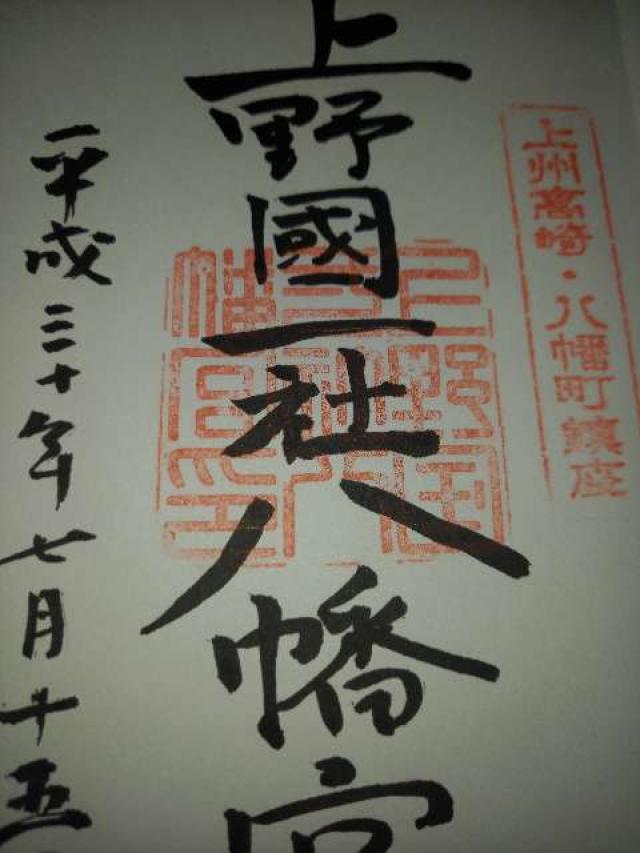 上州高崎・八幡町鎮座
上野國一社八幡宮
平成三十年七月十五